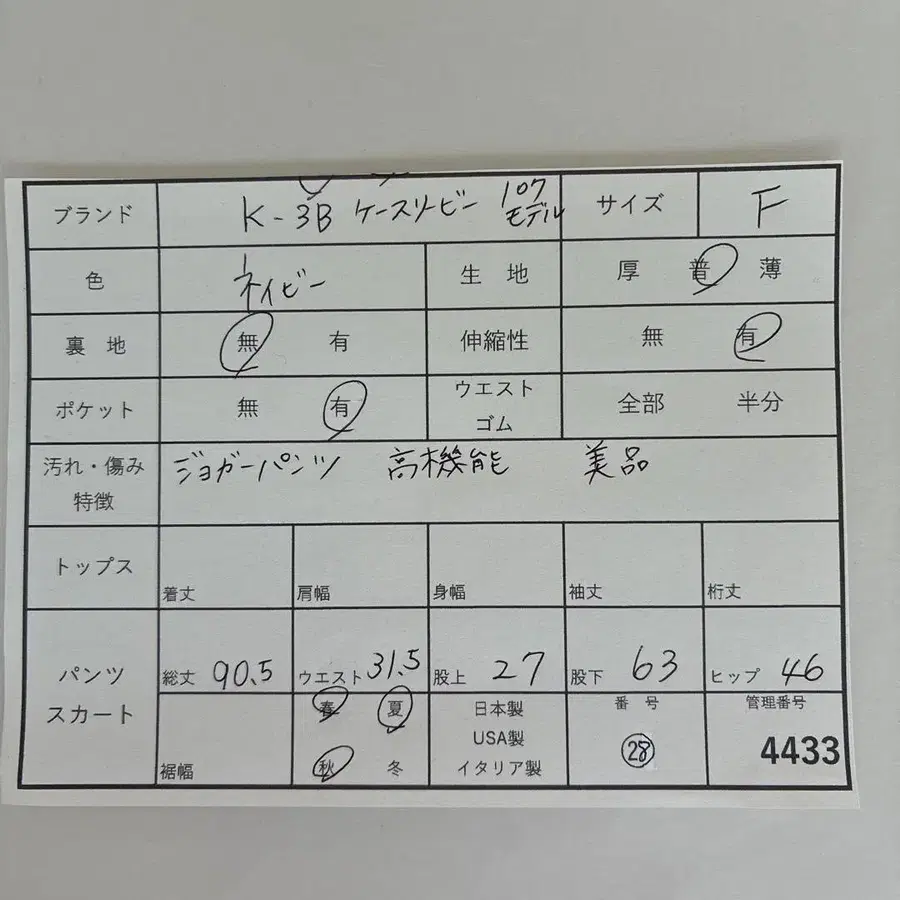 ブランド K-3B ケースリービー 107 モデル サイズ F
色 ネイビー 生地 厚 普 薄
裏地 無 有 伸縮性 無 有
ポケット 無 有 ウエスト ゴム 全部 半分
汚れ・傷み 特徴 ジョガーパンツ 高機能 美品
トップス 着丈 肩幅 身幅 袖丈 裄丈
パンツ スカート 総丈 90.5 ウエスト 31.5 股上 27 股下 63 ヒップ 46
裾幅 春 夏 秋 冬 日本製 USA製 イタリア製 番号 28 管理番号 4433